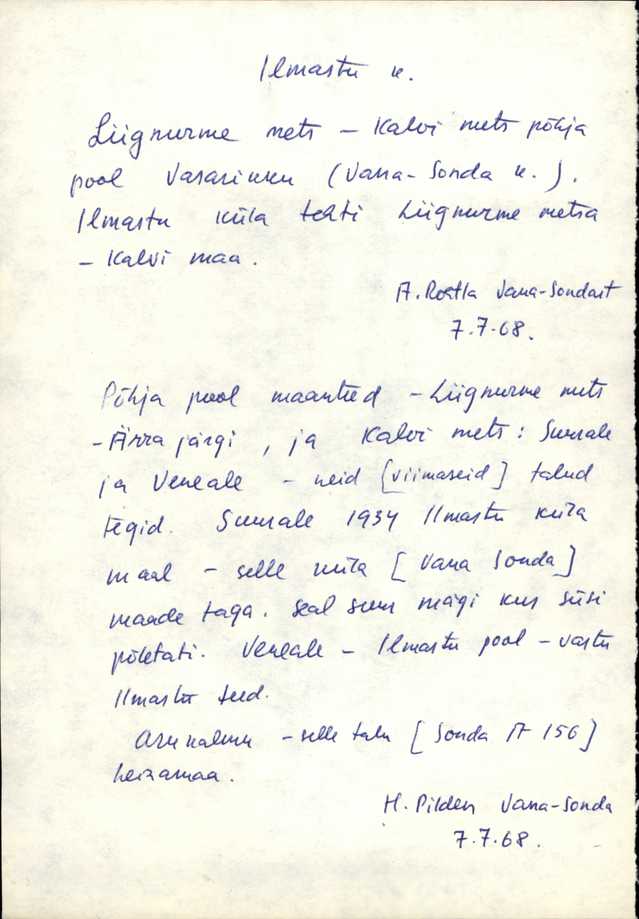 Ilmastu k.
Liignurme mets – Kalvi mets põhja
pool Vasarinuku (Vana-Sonda k.).
Ilmastu küla tehti Liignurme metsa
– Kalvi maa.
A. Rostla Vana-Sondast
7.7.68.
Põhja pool maanteed – Liignurme mets
– Ärra järgi, ja Kalvi mets: Suurale
ja Veneale – neid [viimaseid] talud
tegid. Suurale 1934 Ilmastu küla
maal – selle küla [Vana Sonda]
maade taga. Seal suur mägi kus süsi
põletati. Veneale – Ilmastu pool – vastu
Ilmastu teed.
– selle talu [Sonda A 156]
heinamaa.
H. Pilden Vana-Sonda
7.7.68.